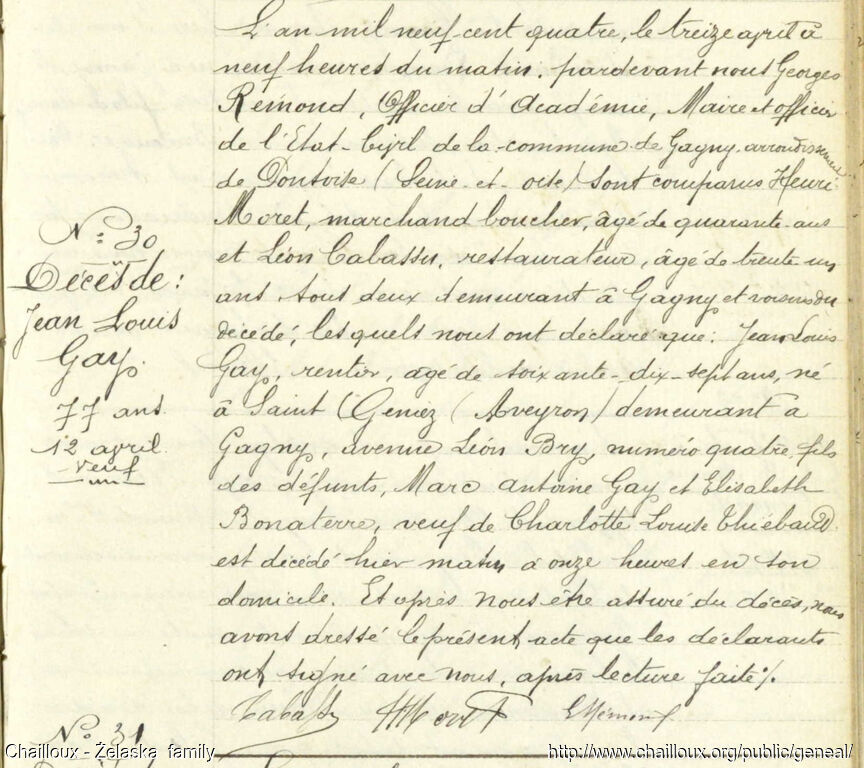 L'an mil neuf cent quatre, le treize april à
neuf heures du matin, pardevant nous Georges
Rémond, Officier d'Académie, Maire et officier
de l'Etat-Civil de la commune de Gagny arrondissement
de Pontoise (Seine-et-oise) sont comparus Henri
Moret, marchand boucher, âgé de quarante ans
et Léon Cabassu, restaurateur, âgé de trente un
ans, tous deux demeurant à Gagny et voisins du
décédé, lesquels nous ont déclaré que: Jean Louis
Gay, rentier, agé de soixante-dix-sept ans, né
à Saint (Geniez (Aveyron) demeurant à
Gagny, avenue Léon Bry, numéro quatre, fils
des défunts, Marc Antoine Gay et Elisabeth
Bonaterre, veuf de Charlotte Louise Thiébaud.
est décédé hier matin à onze heures en son
domicile. Et après nous être assuré du décès, nous
avons dressé le présent acte que les déclarants
ont signé avec nous, après lecture faite ./.
Cabassu HMoret Rémond
N° 30
Décès de:
Jean Louis
Gay.
77 ans.
12 april.
veuf
N° 31
Chailloux - Zelaska family
http://www.chailloux.org/public/geneal/